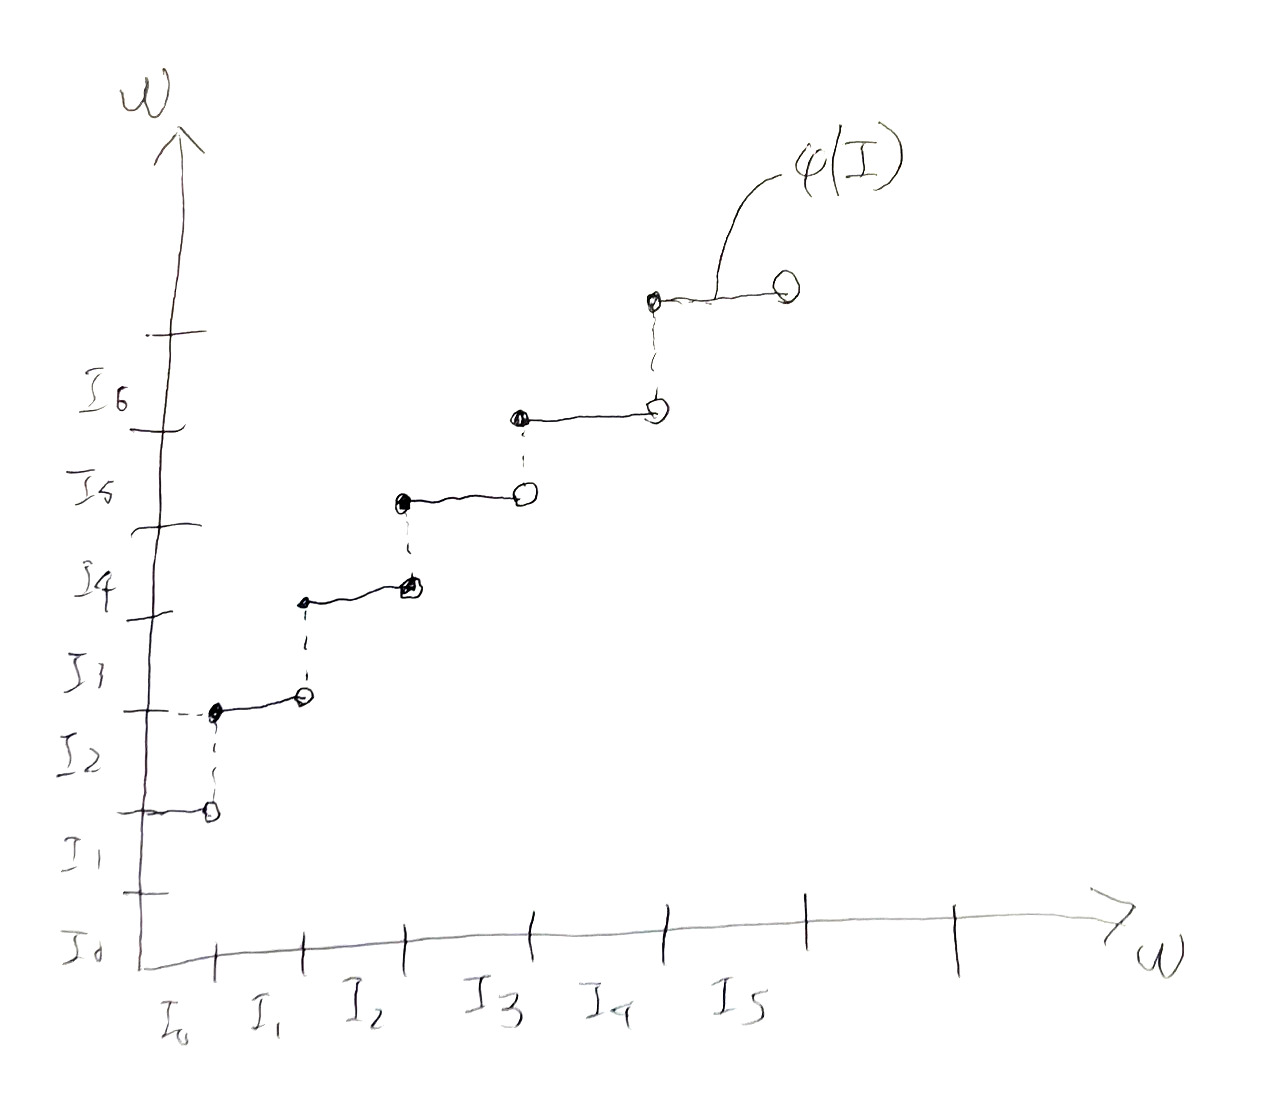 ω
φ(I)
I6
I5
I4
I3
I2
I1
I0
ω
I0 I1 I2 I3 I4 I5